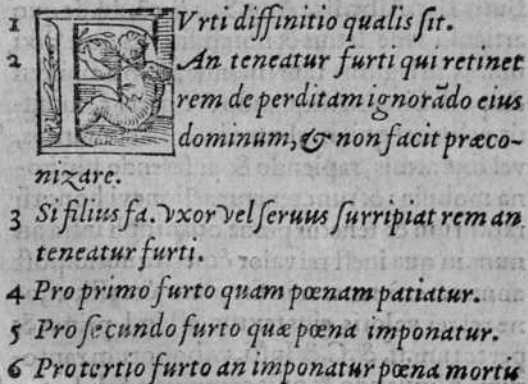 1 FVrti diffinitio qualis sit.
2 An teneatur furti qui retinet
rem de perditam ignorãdo eius
dominum, & non facit præco-
nizare.
3 Si filius fa. vxor vel seruus surripiat rem an
teneatur furti.
4 Pro primo furto quam pœnam patiatur.
5 Pro secundo furto quæ pœna imponatur.
6 Pro tertio furto an imponatur pœna mortis